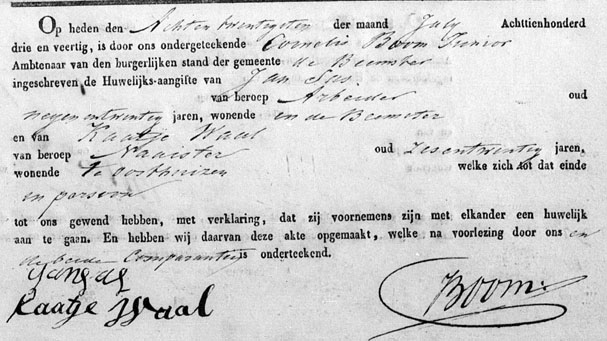 Op heden den Achtentwintigsten der maand July Achttienhonderd
drie en veertig, is door ons ondergeteekende Cornelis Boom Junior
Ambtenaar van den burgerlijken stand der gemeente de Beemster
ingeschreven de Huwelijks-aangifte van Jan
van beroep Arbeider oud
negenentwintig jaren, wonende in de Beemster
en van Kaatje Waal
van beroep Naaister oud Zesentwintig jaren,
wonende te Oosthuizen welke zich tot dat einde
in persoon
tot ons gewend hebben, met verklaring, dat zij voornemens zijn met elkander een huwelijk
aan te gaan. En hebben wij daarvan deze akte opgemaakt, welke na voorlezing door ons en
de beide Comparanten is onderteekend.
Kaatje Waal
Boom